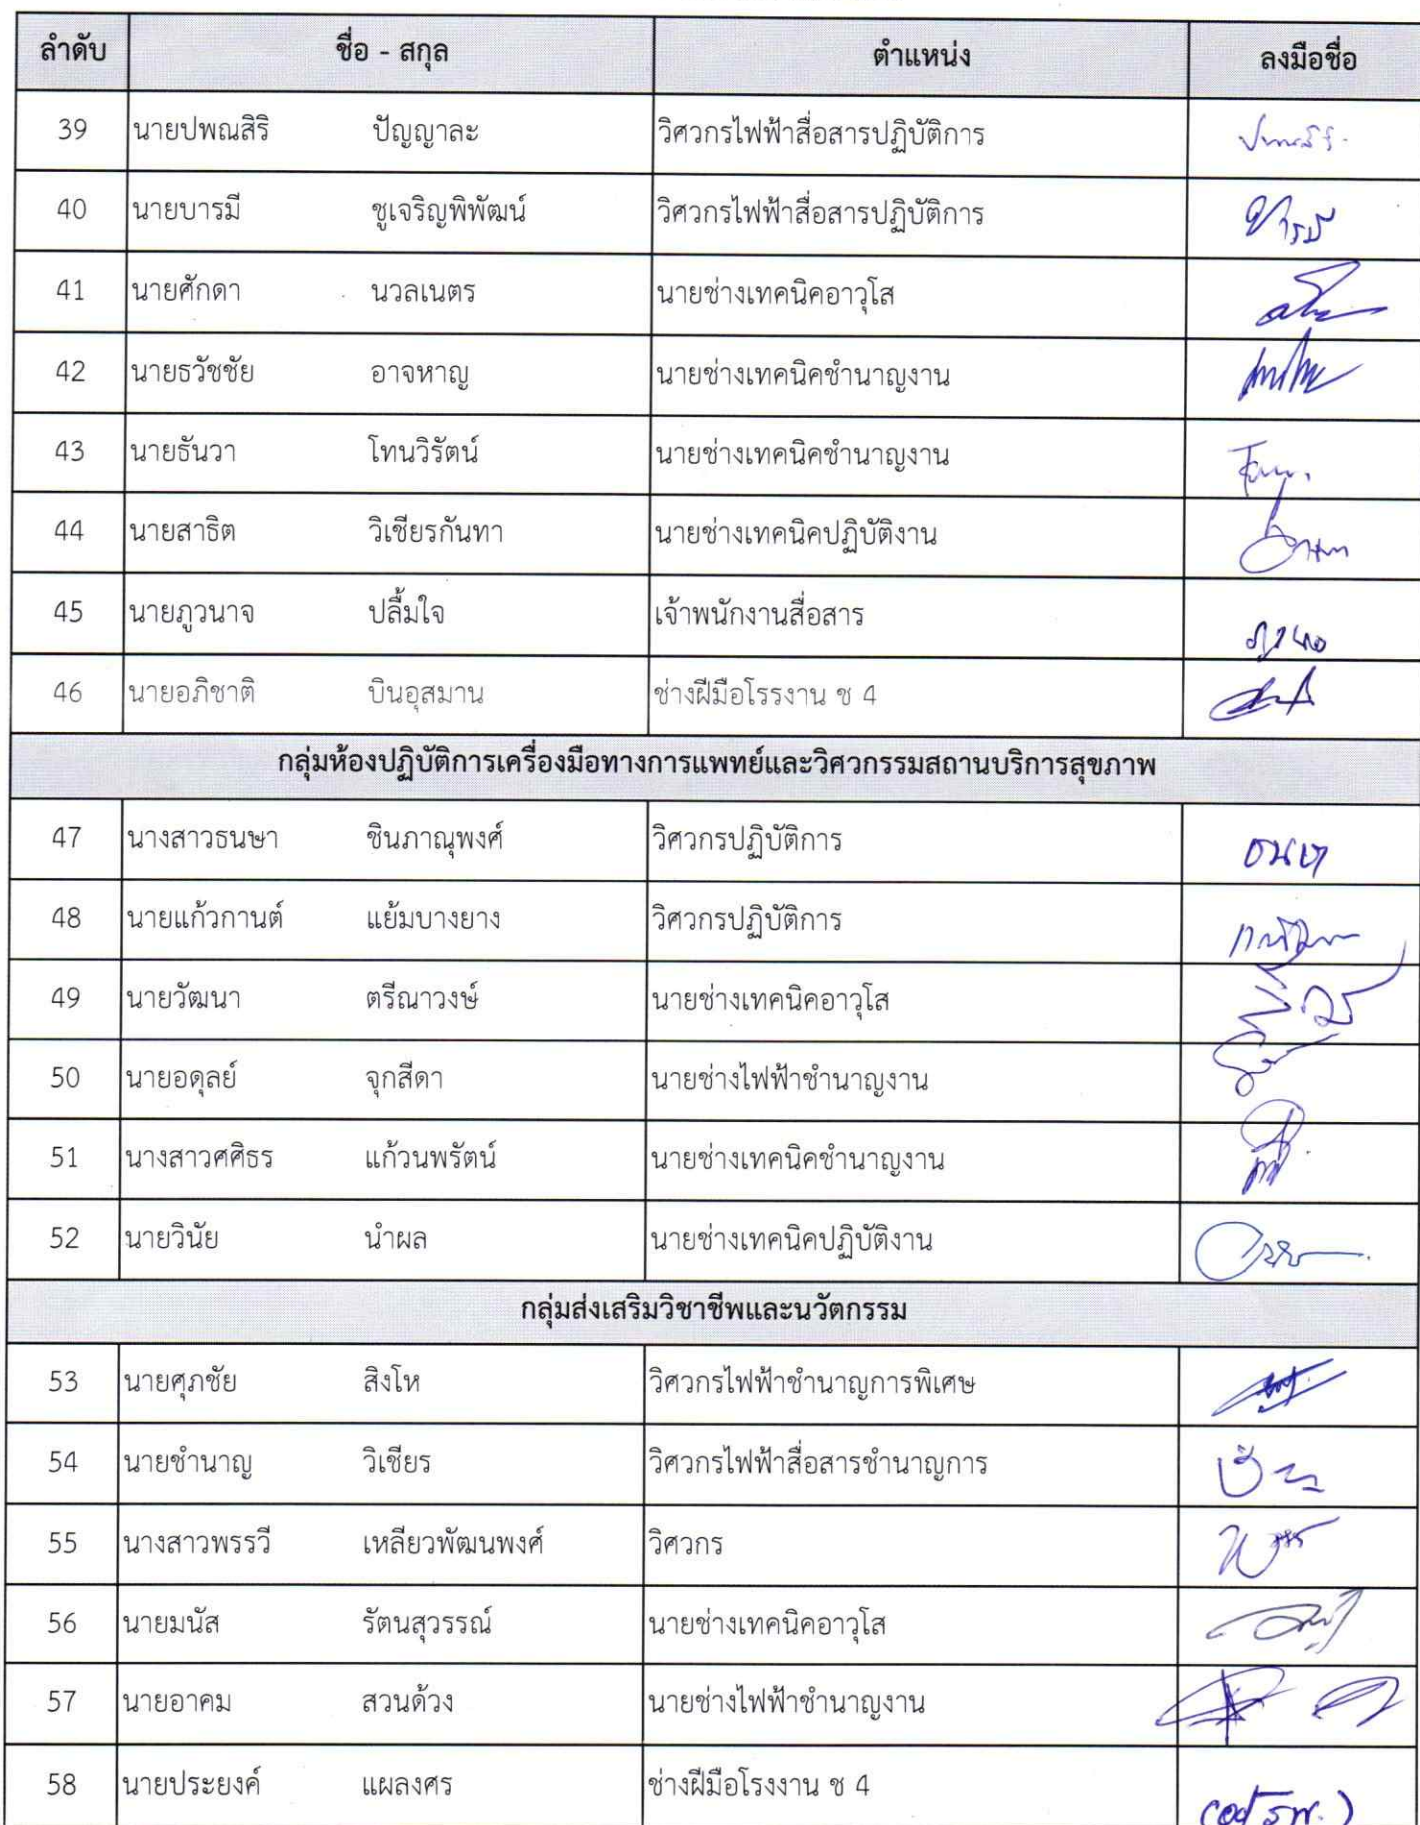 ลำดับ ชื่อ - สกุล ตำแหน่ง ลงมือชื่อ
39 นายปพณสิริ ปัญญาละ วิศวกรไฟฟ้าสื่อสารปฏิบัติการ
40 นายบารมี ชูเจริญพิพัฒน์ วิศวกรไฟฟ้าสื่อสารปฏิบัติการ บารมี
41 นายศักดา นวลเนตร นายช่างเทคนิคอาวุโส
42 นายธวัชชัย อาจหาญ นายช่างเทคนิคชำนาญงาน
43 นายธันวา โทนวิรัตน์ นายช่างเทคนิคชำนาญงาน
44 นายสาธิต วิเชียรกันทา นายช่างเทคนิคปฏิบัติงาน
45 นายภูวนาจ ปลื้มใจ เจ้าพนักงานสื่อสาร
46 นายอภิชาติ บินอุสมาน ช่างฝีมือโรรงาน ช 4
กลุ่มห้องปฏิบัติการเครื่องมือทางการแพทย์และวิศวกรรมสถานบริการสุขภาพ
47 นางสาวธนษา ชินภาณุพงศ์ วิศวกรปฏิบัติการ ธนษา
48 นายแก้วกานต์ แย้มบางยาง วิศวกรปฏิบัติการ
49 นายวัฒนา ตรีณาวงษ์ นายช่างเทคนิคอาวุโส
50 นายอดุลย์ จุกสีดา นายช่างไฟฟ้าชำนาญงาน
51 นางสาวศศิธร แก้วนพรัตน์ นายช่างเทคนิคชำนาญงาน
52 นายวินัย นำผล นายช่างเทคนิคปฏิบัติงาน
กลุ่มส่งเสริมวิชาชีพและนวัตกรรม
53 นายศุภชัย สิงโห วิศวกรไฟฟ้าชำนาญการพิเศษ
54 นายชำนาญ วิเชียร วิศวกรไฟฟ้าสื่อสารชำนาญการ
55 นางสาวพรรวี เหลียวพัฒนพงศ์ วิศวกร
56 นายมนัส รัตนสุวรรณ์ นายช่างเทคนิคอาวุโส
57 นายอาคม สวนด้วง นายช่างไฟฟ้าชำนาญงาน
58 นายประยงค์ แผลงศร ช่างฝีมือโรงงาน ช 4